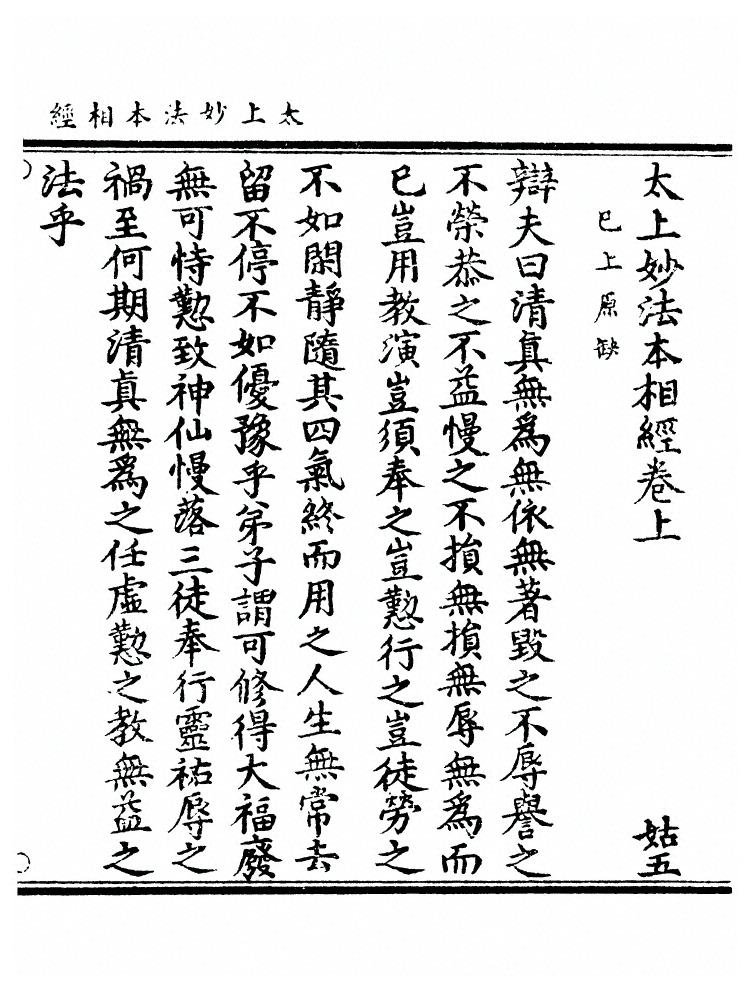 太上妙法本相經
太上妙法本相經卷上
姑五
已上原缺
辯夫曰清真無為無依無著毀之不辱譽之
不榮恭之不益慢之不損無損無辱無為而
已豈用教演豈須奉之豈懃行之豈徒勞之
不如閑靜隨其四氣終而用之人生無常去
留不停不如優豫乎弟子謂可修得大福廢
無可恃懃致神仙慢落三徒奉行靈祐辱之
禍至何期清真無為之任虛懃之教無益之
法乎